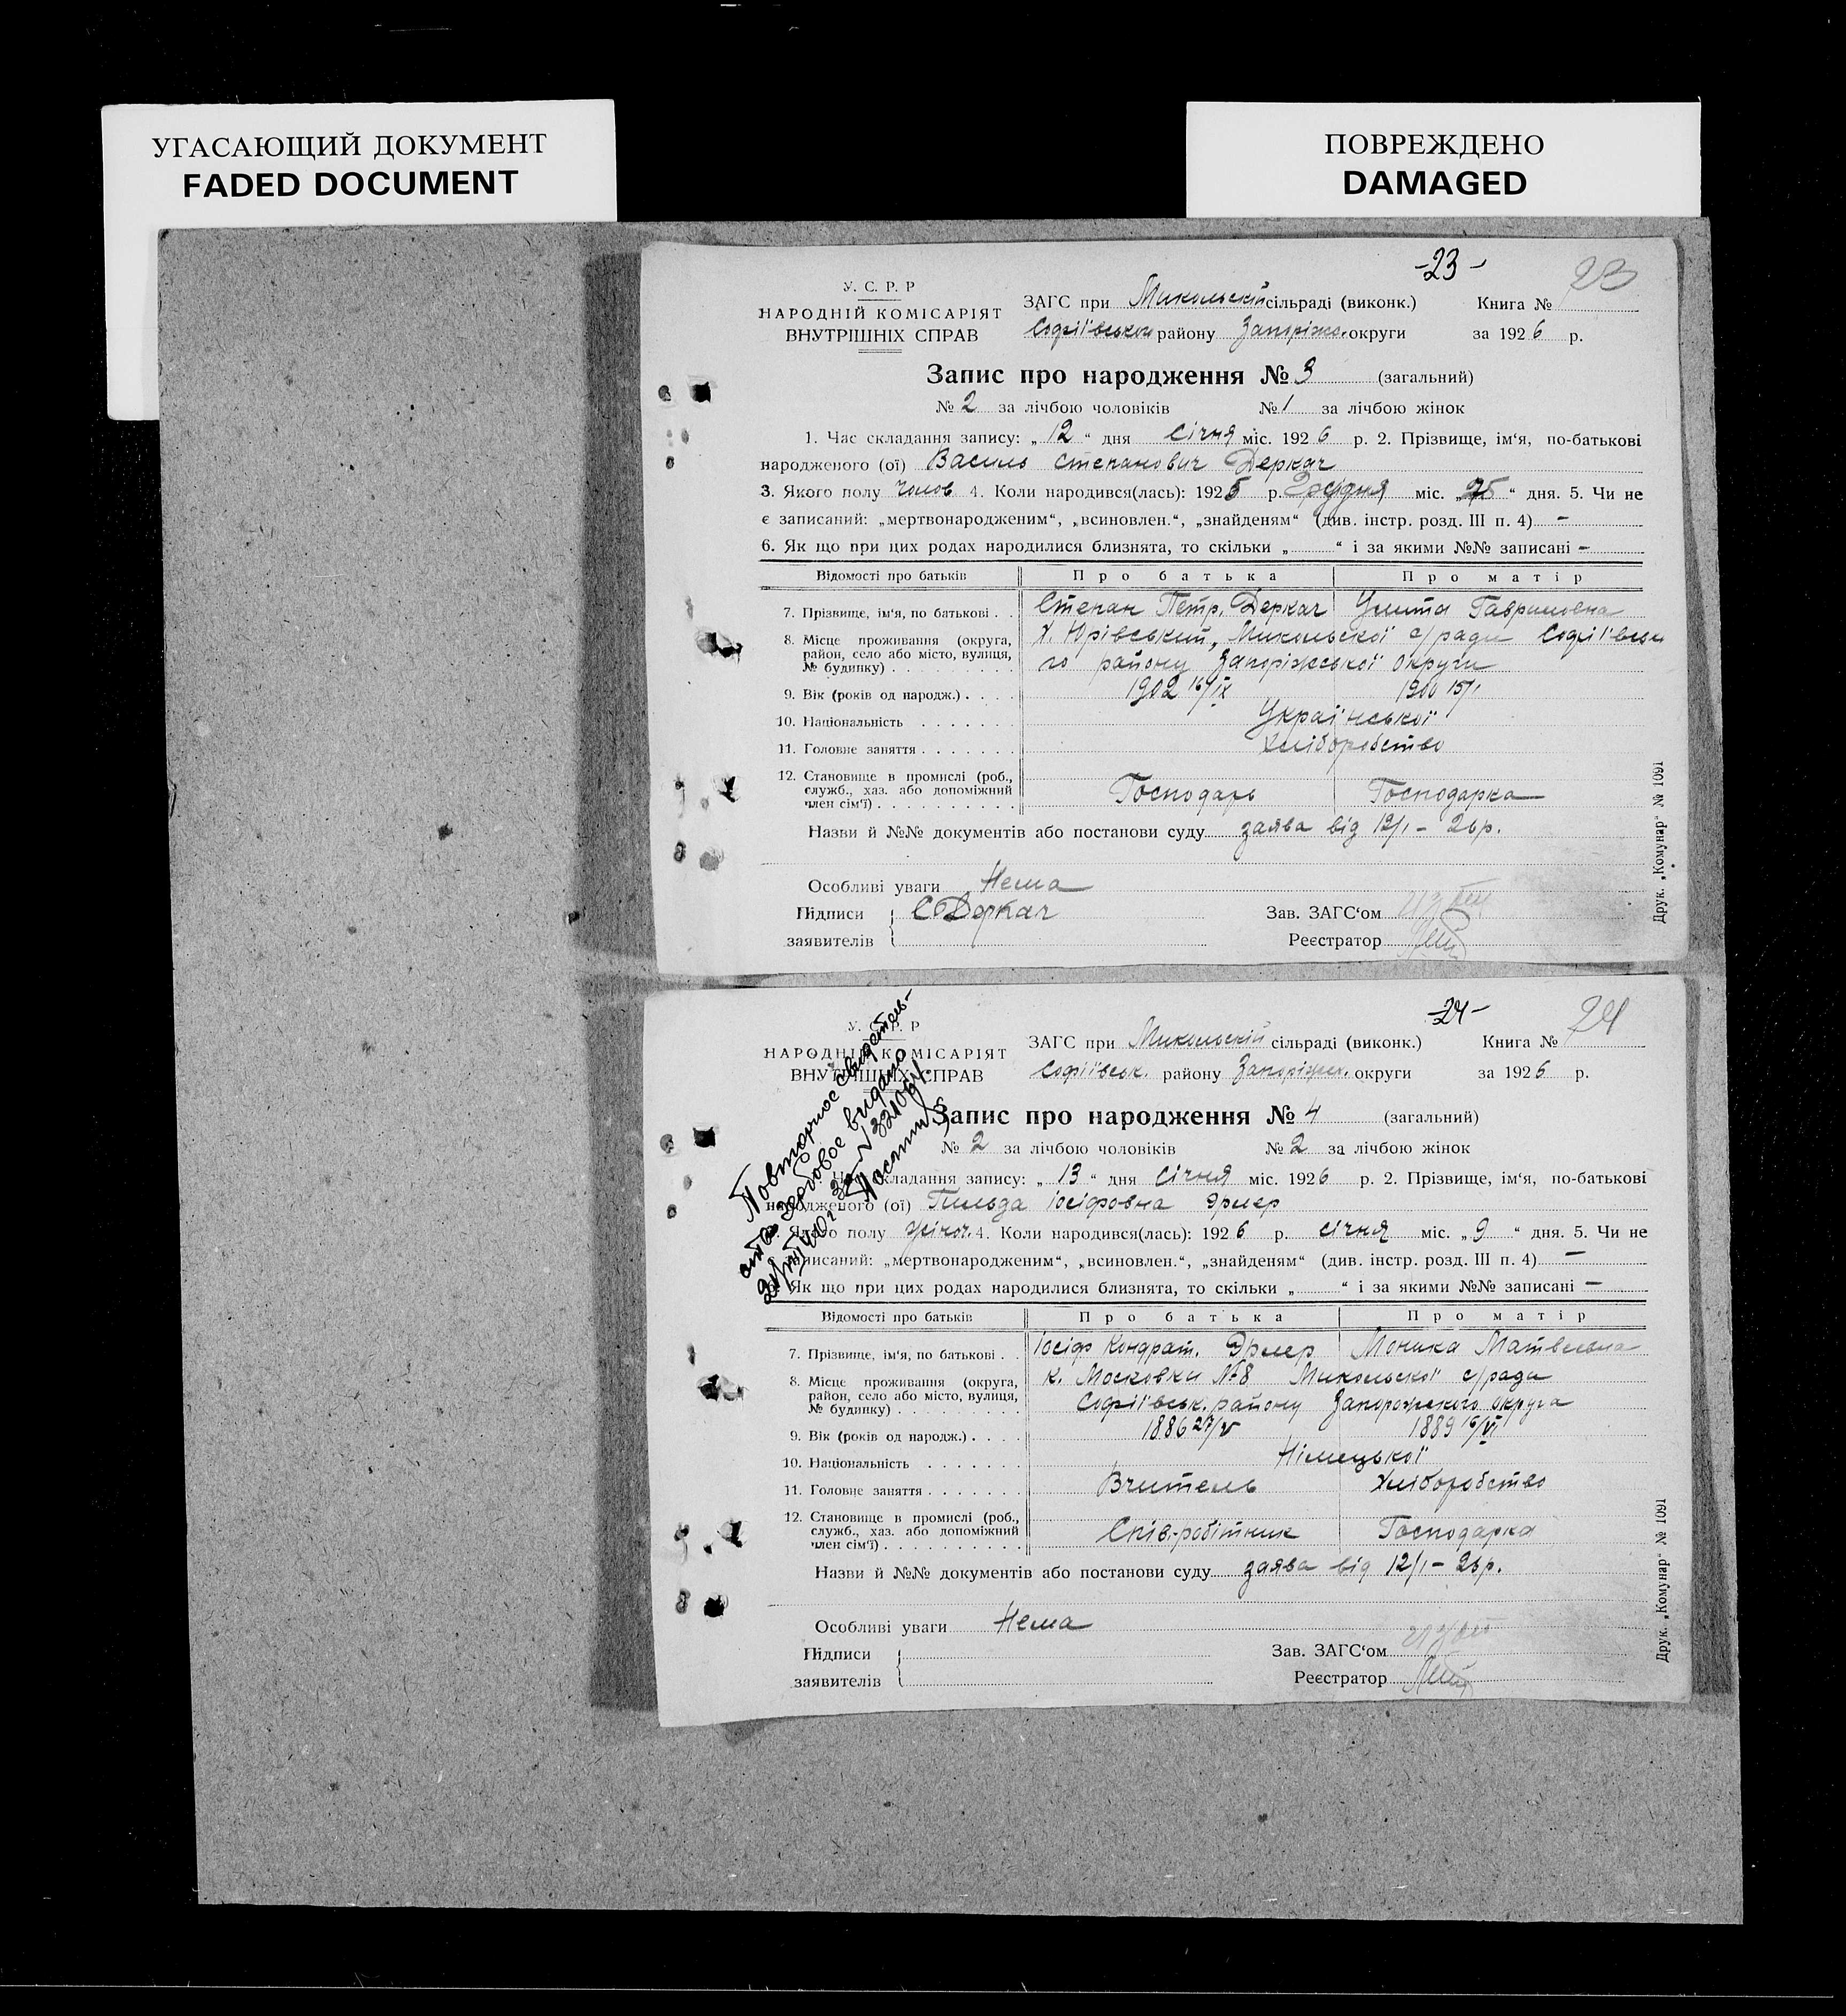 УГАСАЮЩИЙ ДОКУМЕНТ
FADED DOCUMENT
ПОВРЕЖДЕНО
DAMAGED
-23-
23
У. С. Р. Р
НАРОДНІЙ КОМІСАРІЯТ
ВНУТРІШНІХ СПРАВ
ЗАГС при Микольскій сільраді (виконк.) Книга №
Софіївського району Запоріжс. округи за 1926 р.
Запис про народження № 3 (загальний)
№ 2 за лічбою чоловіків № 1 за лічбою жінок
1. Час складання запису: „12“ дня Січня міс. 1926 р. 2. Прізвище, ім‘я, по-батькові
народженого (ої) Василь Степанович Деркач
3. Якого полу чолов 4. Коли народився(лась): 1925 р. Грудня міс. „25“ дня. 5. Чи не
є записаний: „мертвонародженим“, „всиновлен.“, „знайденям“ (див. інстр. розд. III п. 4) —
6. Як що при цих родах народилися близнята, то скільки „ “ і за якими №№ записані —
Відомості про батьків Про батька Про матір
7. Прізвище, ім‘я, по батькові . . Степан Петр. Деркач Улита Гавриловна
8. Місце проживання (округа, район, село або місто, вулиця, № будинку) х. Юрівський, Микольскої с/ради Софіївсько
го району Запоріжської округи
9. Вік (років од народж.) . . . . 1902 16/IX 1900 15/I
10. Національність Української
11. Головне заняття Хліборобство
12. Становище в промислі (роб., служб., хаз. або допоміжний член сім‘ї) Господарь Господарка
Назви й №№ документів або постанови суду заява від 12/I – 26 р.
Особливі уваги Нема
Підписи СДеркач Зав. ЗАГС‘ом
заявителів Реєстратор
Друк. „Комунар“ № 1091
-24-
24
У. С. Р. Р
НАРОДНІЙ КОМІСАРІЯТ
ВНУТРІШНІХ СПРАВ
Повторное свидетель-
ство гербовое видано
за № 321064
ЗАГС при Микольскій сільраді (виконк.) Книга №
Софіївськ. району Запоріжс. округи за 1926 р.
Запис про народження № 4 (загальний)
№ 2 за лічбою чоловіків № 2 за лічбою жінок
Час складання запису: „13“ дня Січня міс. 1926 р. 2. Прізвище, ім‘я, по-батькові
народженого (ої) Гильда Іосіфовна Эрлер
Якого полу жіноч. 4. Коли народився(лась): 1926 р. січня міс. „9“ дня. 5. Чи не
є записаний: „мертвонародженим“, „всиновлен.“, „знайденям“ (див. інстр. розд. III п. 4) —
6. Як що при цих родах народилися близнята, то скільки „ “ і за якими №№ записані —
Відомості про батьків Про батька Про матір
7. Прізвище, ім‘я, по батькові . . Іосіф Кондрат. Эрлер Моника Матвеевна
8. Місце проживання (округа, район, село або місто, вулиця, № будинку) к. Московки №8 Микольскої с/ради
Софіївськ. району Запорожского округа
9. Вік (років од народж.) . . . . 1886 27/V 1889 16/VI
10. Національність Німецької
11. Головне заняття Вчитель Хліборобство
12. Становище в промислі (роб., служб., хаз. або допоміжний член сім‘ї) Спів-робітник Господарка
Назви й №№ документів або постанови суду заява від 12/I – 26 р.
Особливі уваги Нема
Підписи Зав. ЗАГС‘ом
заявителів Реєстратор
Друк. „Комунар“ № 1091